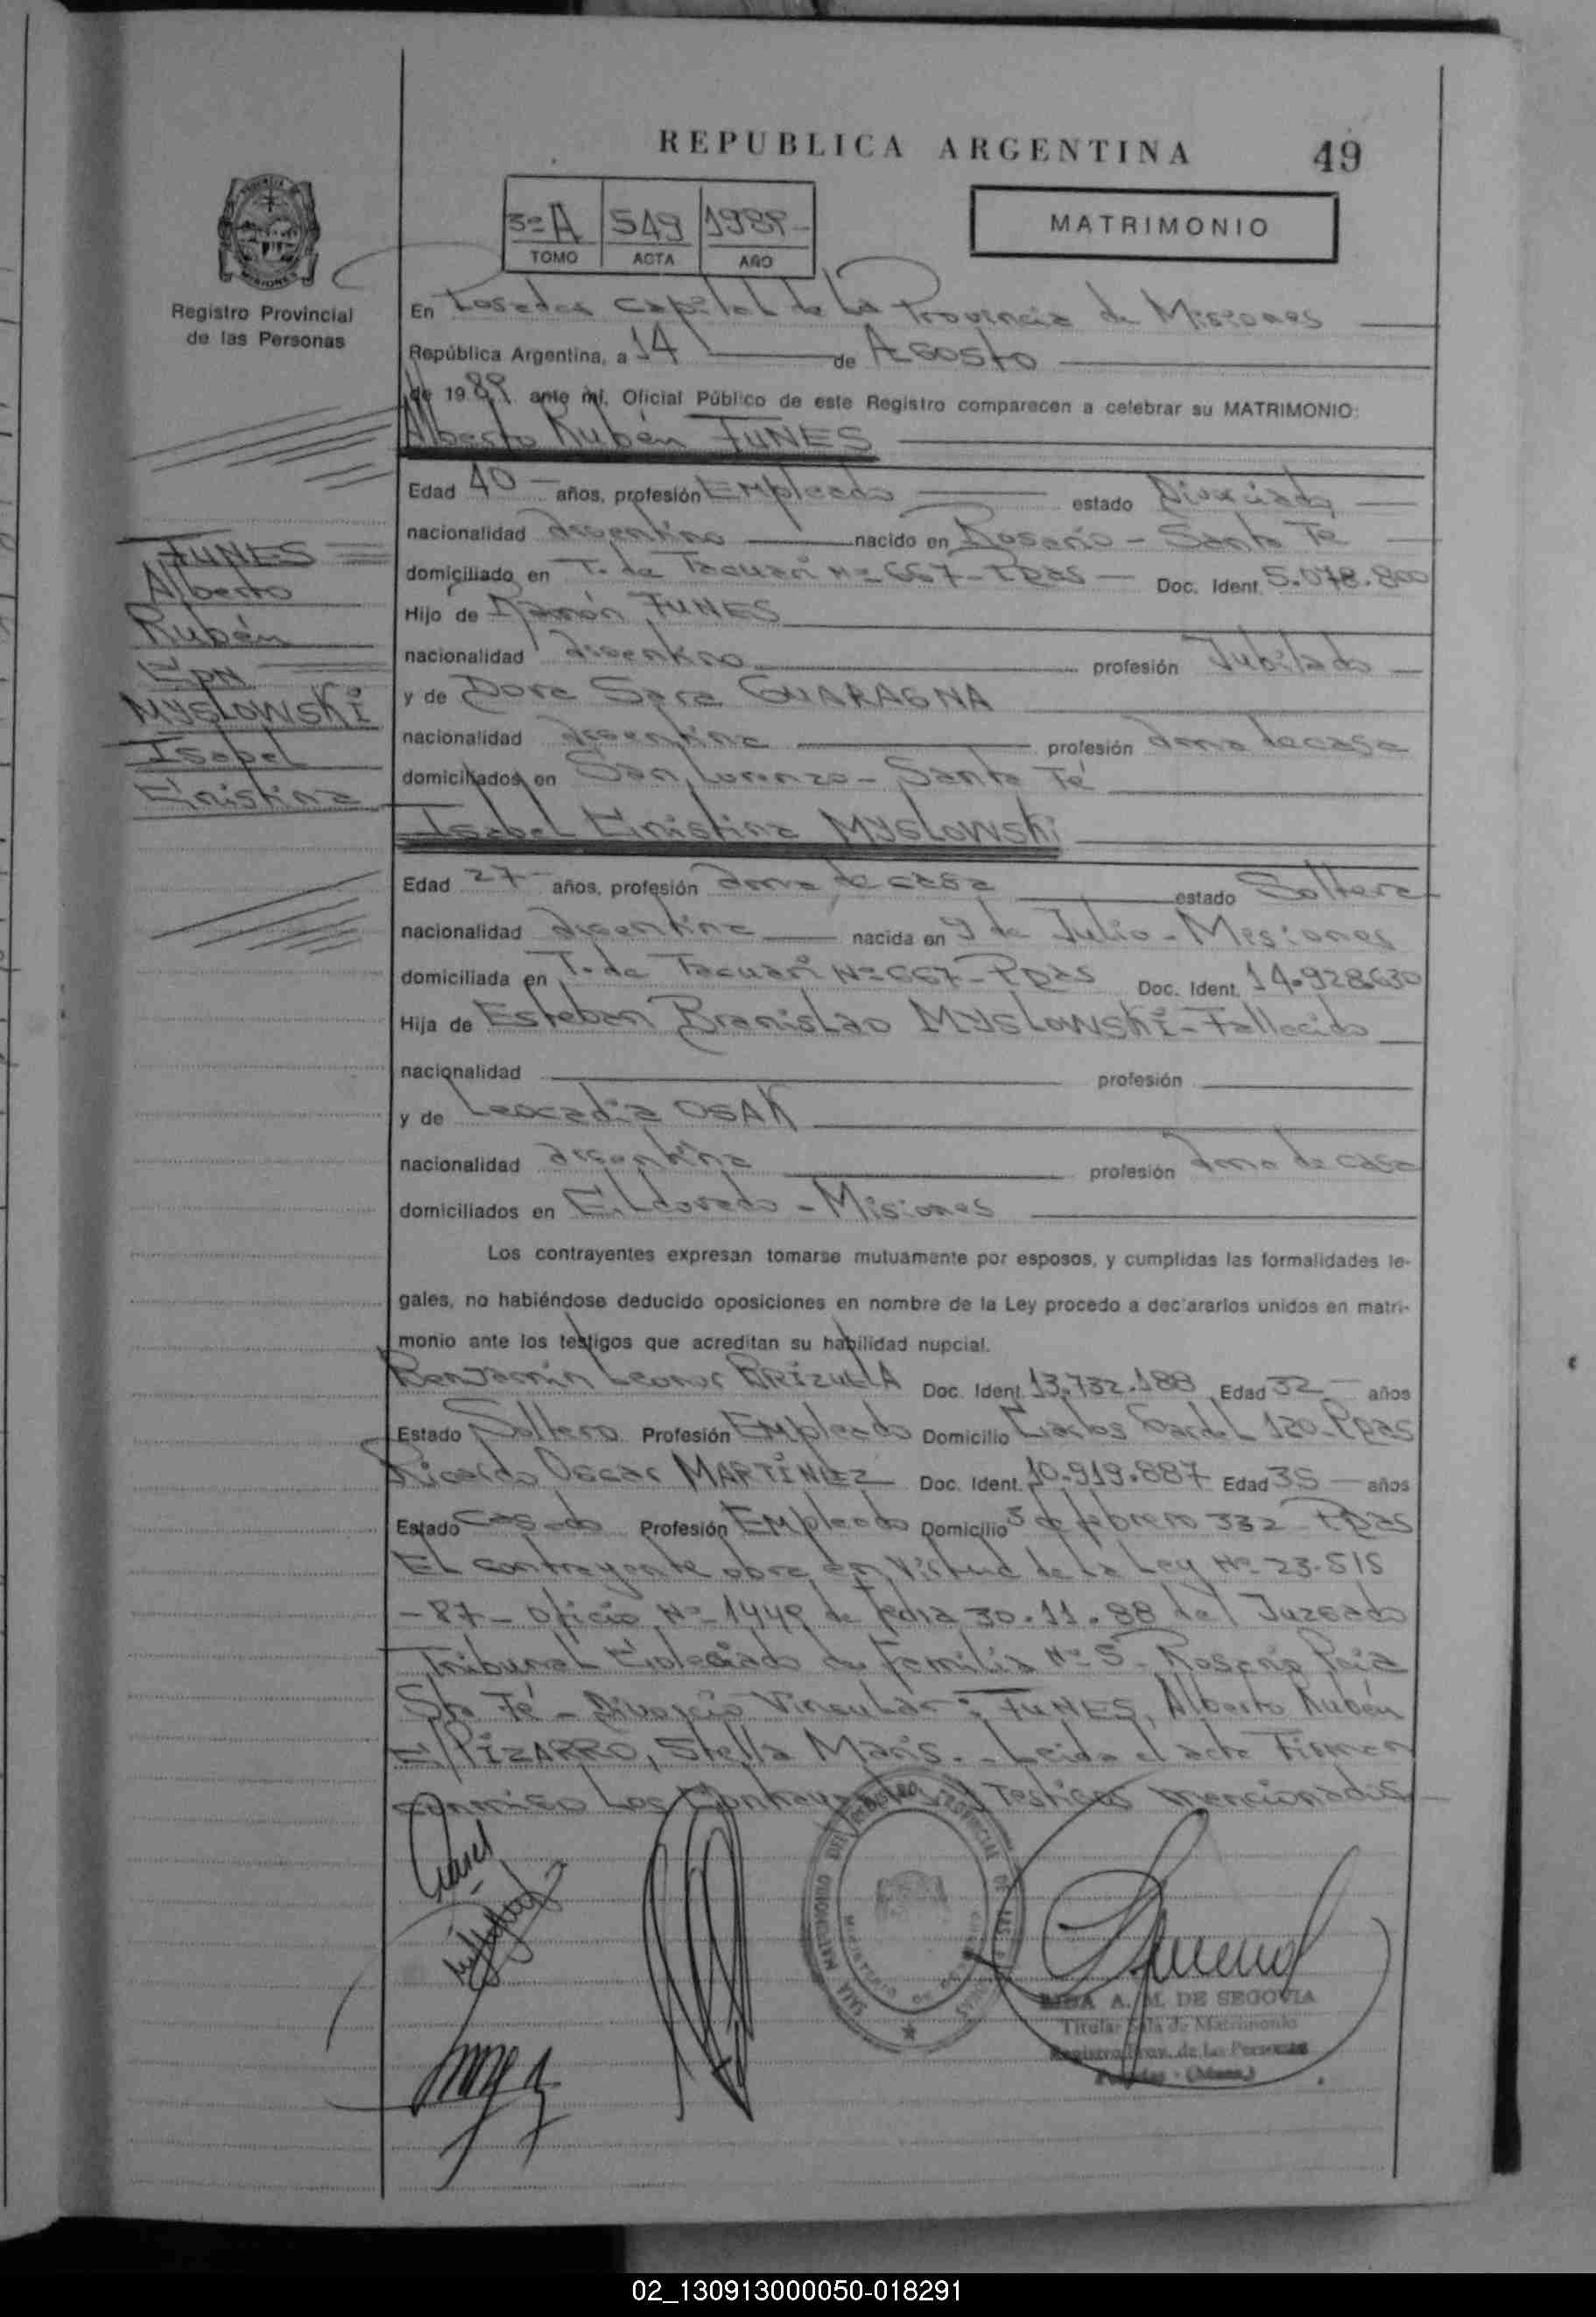 REPUBLICA ARGENTINA 49
3º A 549 1989
TOMO ACTA AÑO
MATRIMONIO
Registro Provincial
de las Personas
En Posadas Capital de La Provincia de Misiones
República Argentina, a 14 de Agosto
de 1989 ante mí, Oficial Público de este Registro comparecen a celebrar su MATRIMONIO:
Alberto Rubén FUNES
Edad 40 años, profesión Empleado estado Divorciado
nacionalidad argentino nacido en Rosario - Santa Fé
domiciliado en T. de Tacuarí Nº 667 - Pdas - Doc. Ident. 5.078.800
Hijo de Ramón FUNES
nacionalidad argentino profesión Jubilado
y de Dora Sara GUARAGNA
nacionalidad argentina profesión ama de casa
domiciliados en San Lorenzo - Santa Fé
FUNES
Alberto
Rubén
Con
MYSLOWSKI
Isabel
Cristina
Isabel Cristina MYSLOWSKI
Edad 27 años, profesión ama de casa estado Soltera
nacionalidad argentina nacida en 9 de Julio - Misiones
domiciliada en T. de Tacuarí Nº 667 - Pdas Doc. Ident. 14.928.630
Hija de Esteban Branislao MYSLOWSKI - Fallecido
nacionalidad profesión
y de Leocadia OSAK
nacionalidad argentina profesión ama de casa
domiciliados en Eldorado - Misiones
Los contrayentes expresan tomarse mutuamente por esposos, y cumplidas las formalidades le-
gales, no habiéndose deducido oposiciones en nombre de la Ley procedo a declararlos unidos en matri-
monio ante los testigos que acreditan su habilidad nupcial.
Benjamin Leonor BRIZUELA Doc. Ident. 13.732.188 Edad 32 años
Estado Soltero Profesión Empleado Domicilio Carlos Gardel 120 - Pdas
Ricardo Oscar MARTÍNEZ Doc. Ident. 10.919.887 Edad 35 años
Estado Casado Profesión Empleado Domicilio 3 de febrero 332 - Pdas
El contrayente obra en Virtud de La Ley Nº 23.515
- 87 - Oficio Nº 1449 de fecha 30.11.88 del Juzgado
Tribunal Colegiado de Familia Nº 5 - Rosario Pcia
Sta Fé - Divorcio Vincular: FUNES, Alberto Rubén
C/ PIZARRO, Stella Maris. - Leida el acta Firman
conmigo Los Contrayentes y Testigos mencionados
A. M. DE SEGOVIA
Titular Sala de Matrimonio
Registro Prov. de las Personas
Posadas - (Mnes.)
02_130913000050-018291